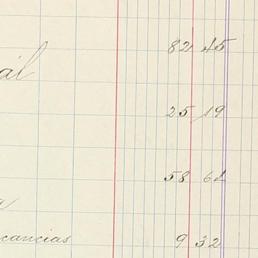 82 45
al
25 19
58 61
9 32
cancias